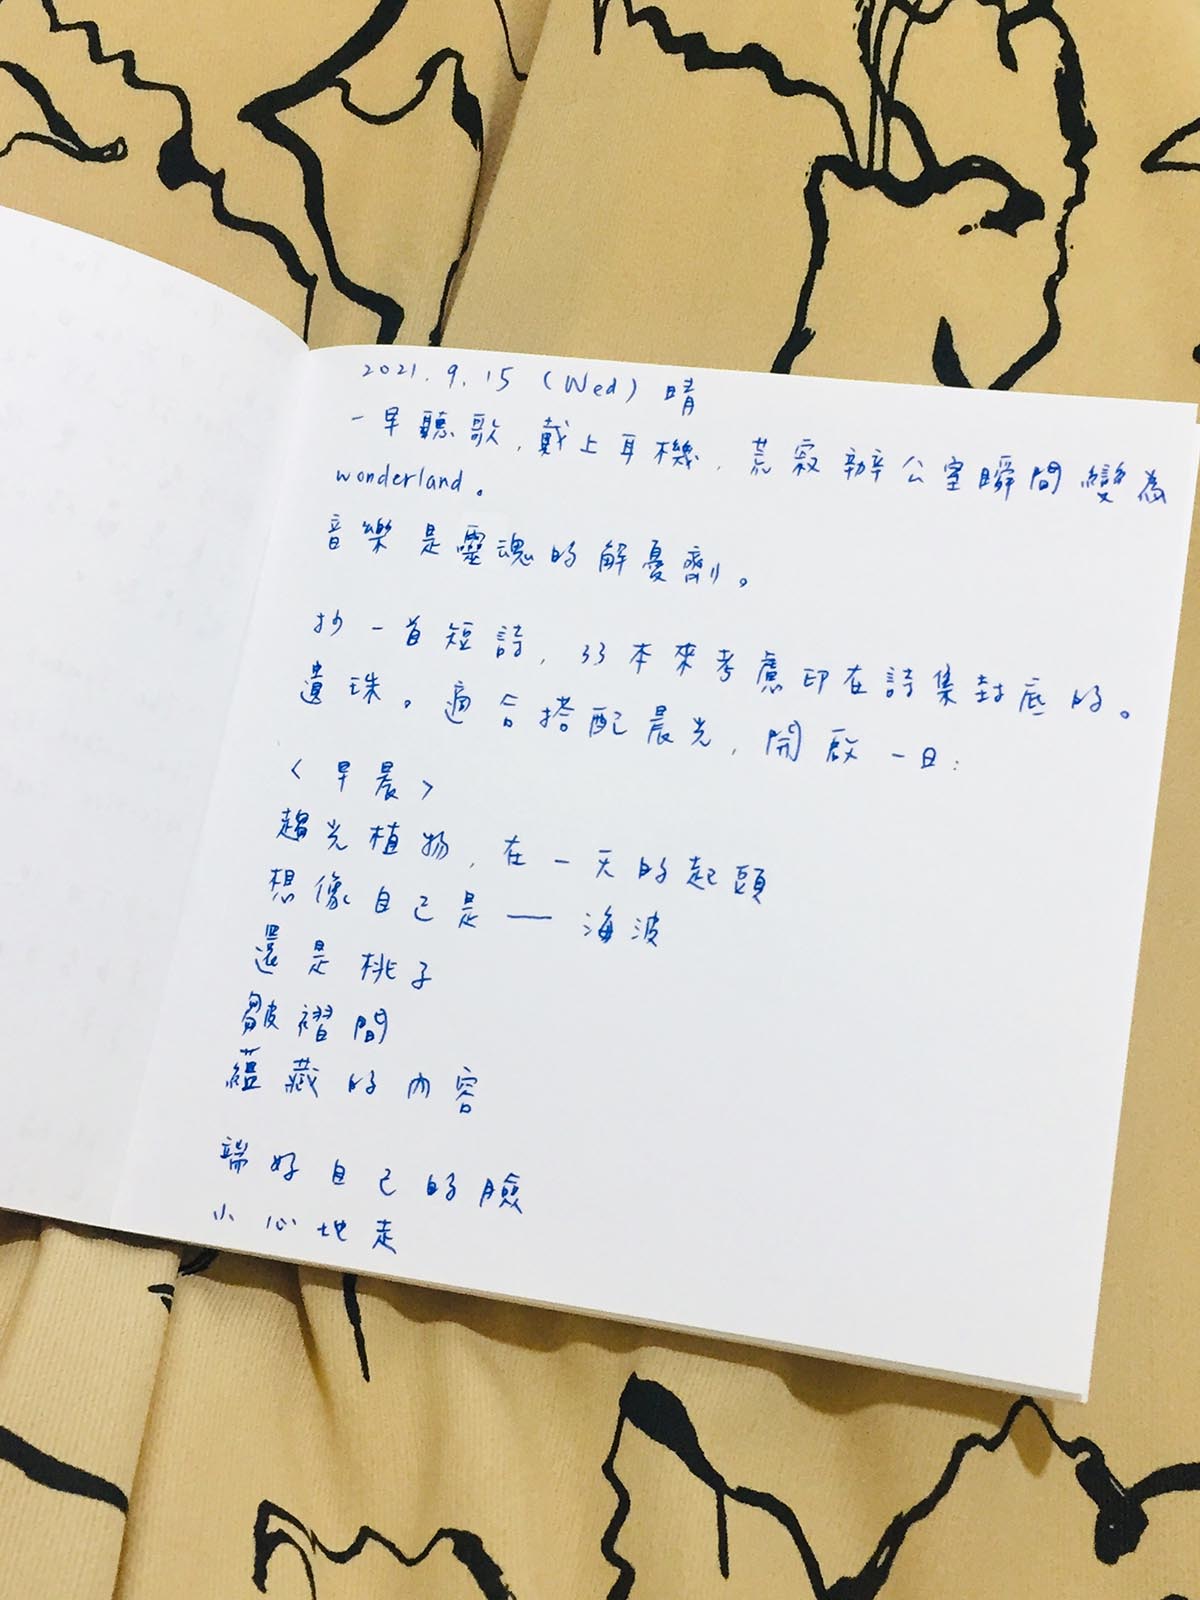 2021.9.15 (Wed) 晴
一早聽歌，戴上耳機，荒寂辦公室瞬間變為
wonderland。
音樂是靈魂的解憂劑。
抄一首短詩，33本來考慮印在詩集封底的。
遺珠。適合搭配晨光，開啟一日：
〈早晨〉
趨光植物，在一天的起頭
想像自己是——海波
還是桃子
皺褶間
蘊藏的內容
端好自己的臉
小心地走